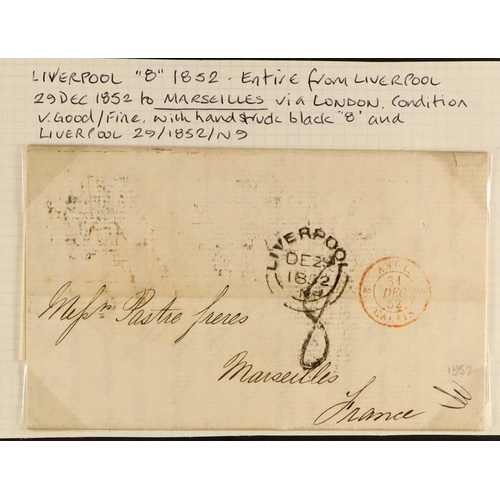 LIVERPOOL "8" 1852 - Entire from LIVERPOOL
29 DEC 1852 to MARSEILLES via LONDON. Condition
V.Good/Fine, with handstruck black "8" and
LIVERPOOL 29/1852/N9
LIVERPOOL
DE 29
1852
N9
8
ANGL.
31
DEC
52
CALAIS
Messrs Pastre freres
Marseilles
France
1852